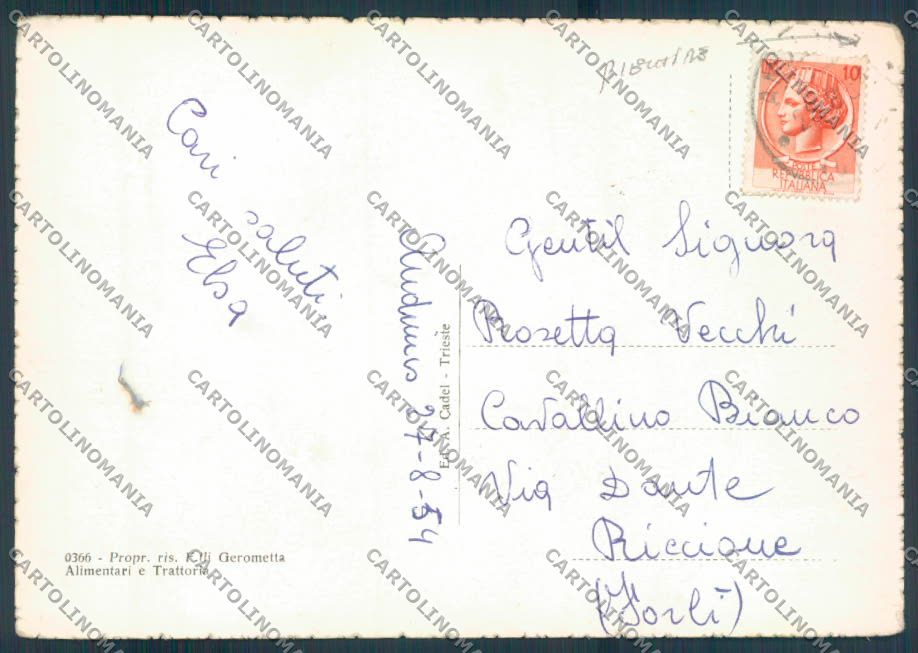 Cari
saluti.
Elsa
Anduins 27-8-54
Gentil Signora
Rosetta Vecchi
Cavallino Bianco
Via Dante
Riccione
(Forlì)
10
POSTE
REPUBBLICA
ITALIANA
Ed. A. Cadel - Trieste
0366 - Propr. ris. F.lli Gerometta
Alimentari e Trattoria
CARTOLINOMANIA